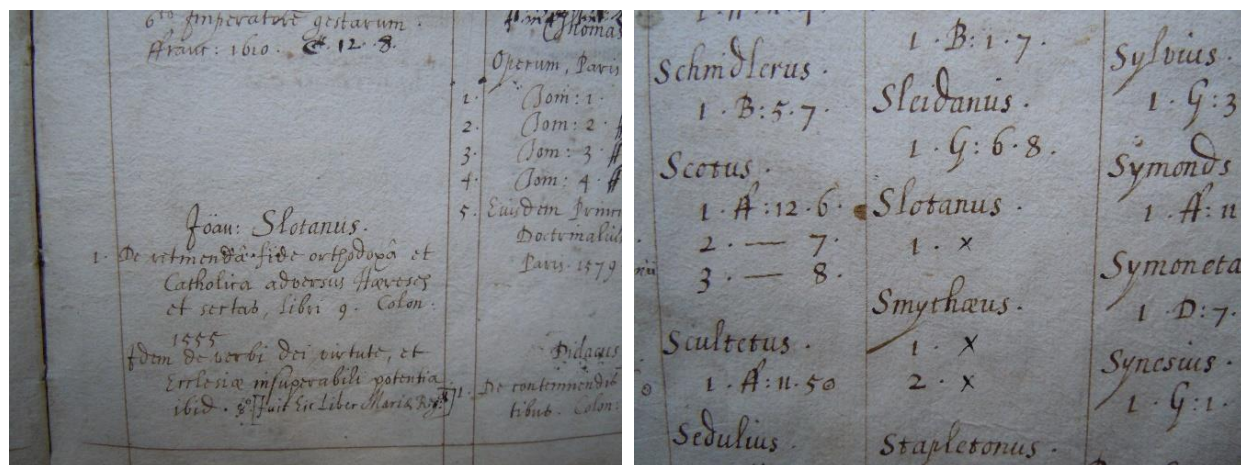 6to Imperatore gestarum
ffranc: 1610. 12. 8.
Joan: Slotanus.
1. De retinendâ fide orthodoxâ et
Catholica adversus Hæreses
et sectas, Libri 9. Colon.
1555
Idem de verbi dei virtute, et
Ecclesiæ insuperabili potentia
ibid. 8o [fuit hic Liber Mariæ Reg:]
Thomas
Operum, Paris
1. Tom: 1.
2. Tom: 2.
3. Tom: 3.
4. Tom: 4.
5. Eiusdem
Doctrinaliu
Paris. 1579
Didacus
1. De contemnendis
tibus. Colon:
Schindlerus.
1. B: 5. 7.
Scotus.
1. ff: 12. 6.
2. — 7.
3. — 8.
Scultetus.
1. ff: 11. 50
Sedulius.
1. B: 1. 7.
Sleidanus.
1. G: 6. 8.
Slotanus.
1. x
Smythæus.
1. x
2. x
Stapletonus.
Sylvius.
1. G: 3
Symonds
1. ff: 11
Symoneta
1. D: 7.
Synesius.
1. G: 1.